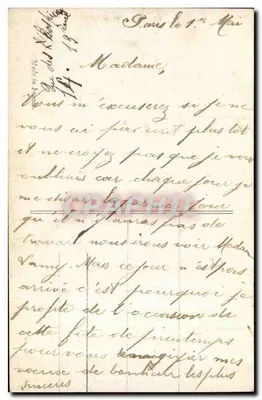 Paris le 1er Mai
Madame,
Vous m'excuserez si je ne
vous ai pas écrit plus tôt
et ne croyez pas que je vous
oublie car chaque jour je
me disais le jour
qu'il n'y aura pas de
travail nous irons voir Madame
Lamy. Mais ce jour n'est pas
arrivé c'est pourquoi je
profite de l'occasion de
cette fête de printemps
pour vous mes
voeux de bonheur les plus
sincères